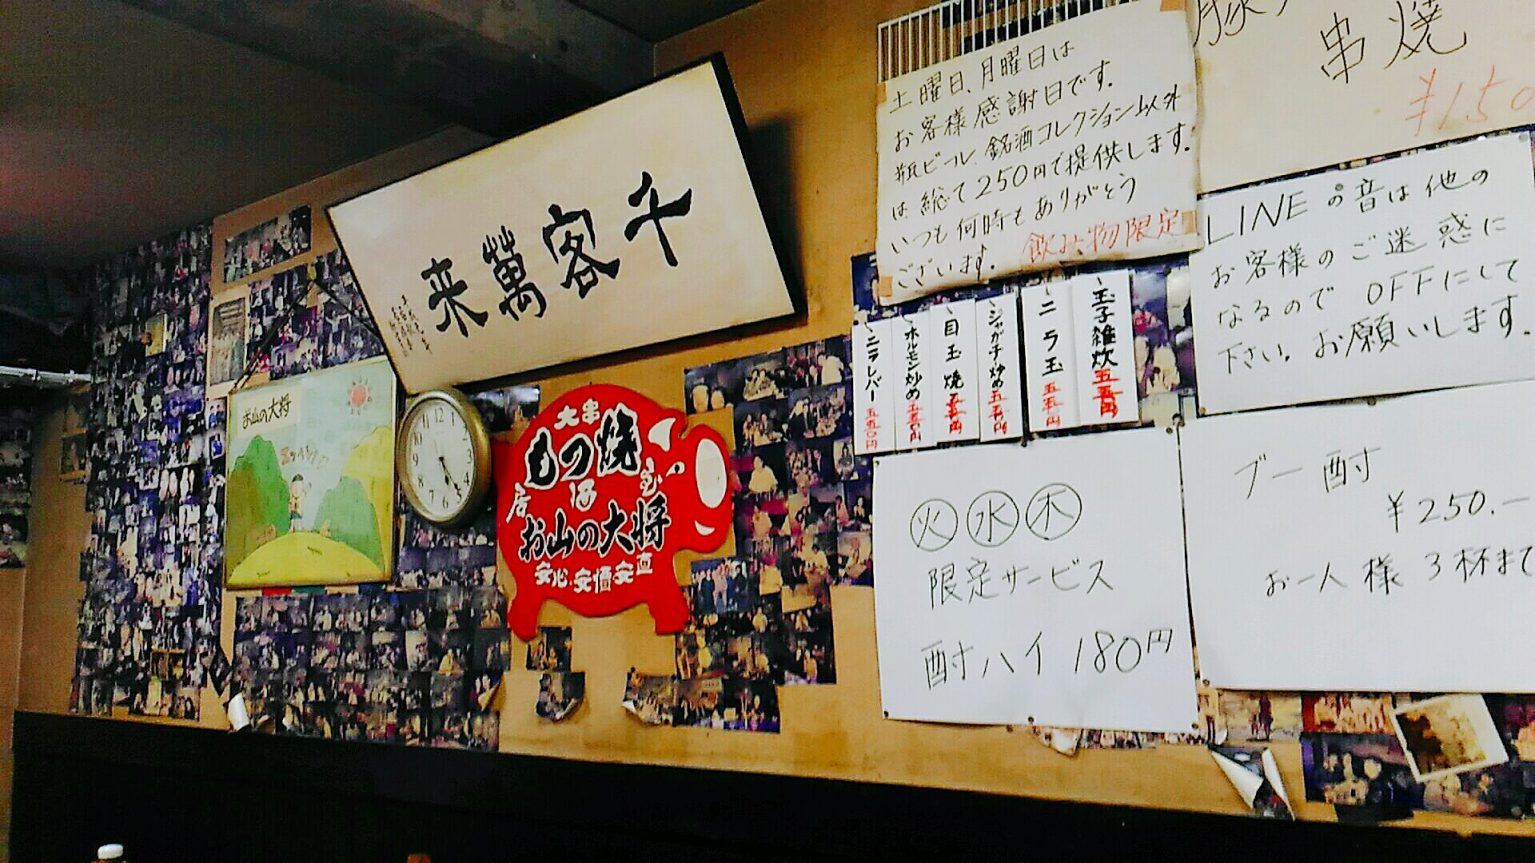 千客萬来
お山の大将
12
大串
もつ焼
居酒屋
お山の大将
安心、安価安直
土曜日、月曜日は
お客様感謝日です。
瓶ビール、銘酒コレクション以外
は総て250円で提供します。
いつも何時もありがとう
ございます。
飲み物限定
串焼
¥150
LINEの音は他の
お客様のご迷惑に
なるのでOFFにして
下さい。お願いします。
ニラレバー 五五〇円
ホルモン炒め 五五〇円
目玉焼 五五〇円
ジャガチャ炒め 五五〇円
ニラ玉 五五〇円
玉子雑炊 五五〇円
火 水 木
限定サービス
酎ハイ 180円
ブー酎
¥250.-
お一人様 3杯まで